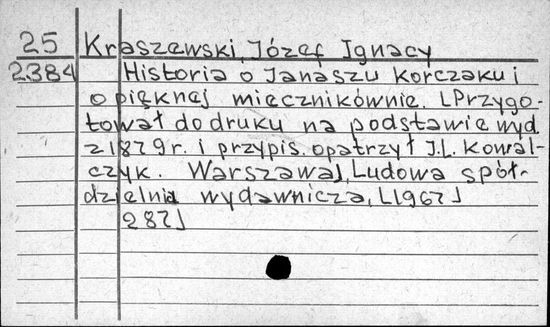 25 Kraszewski, Józef Ignacy
2384 Historia o Janaszu Korczaku i
o pięknej miecznikównie. [Przygo-
tował do druku na podstawie wyd
z 1879 r. i przypis. opatrzył J.L. Kowal-
czyk. Warszawa], Ludowa spół-
dzielnia wydawnicza, [1967]
287]